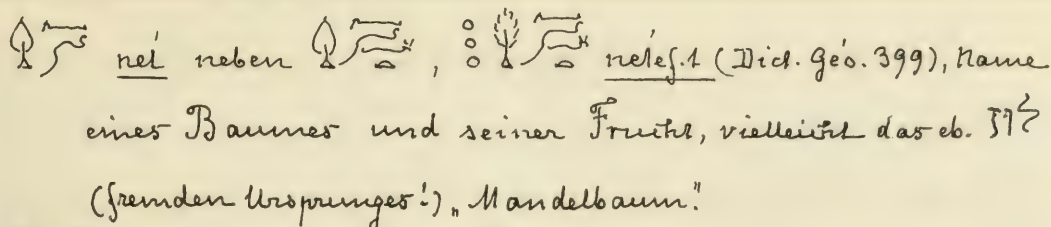 neť neben , neťef.t (Dict. Géo. 399), Name
eines Baumes und seiner Frucht, vielleicht das eb. לוז
(fremden Ursprunges!) „Mandelbaum."